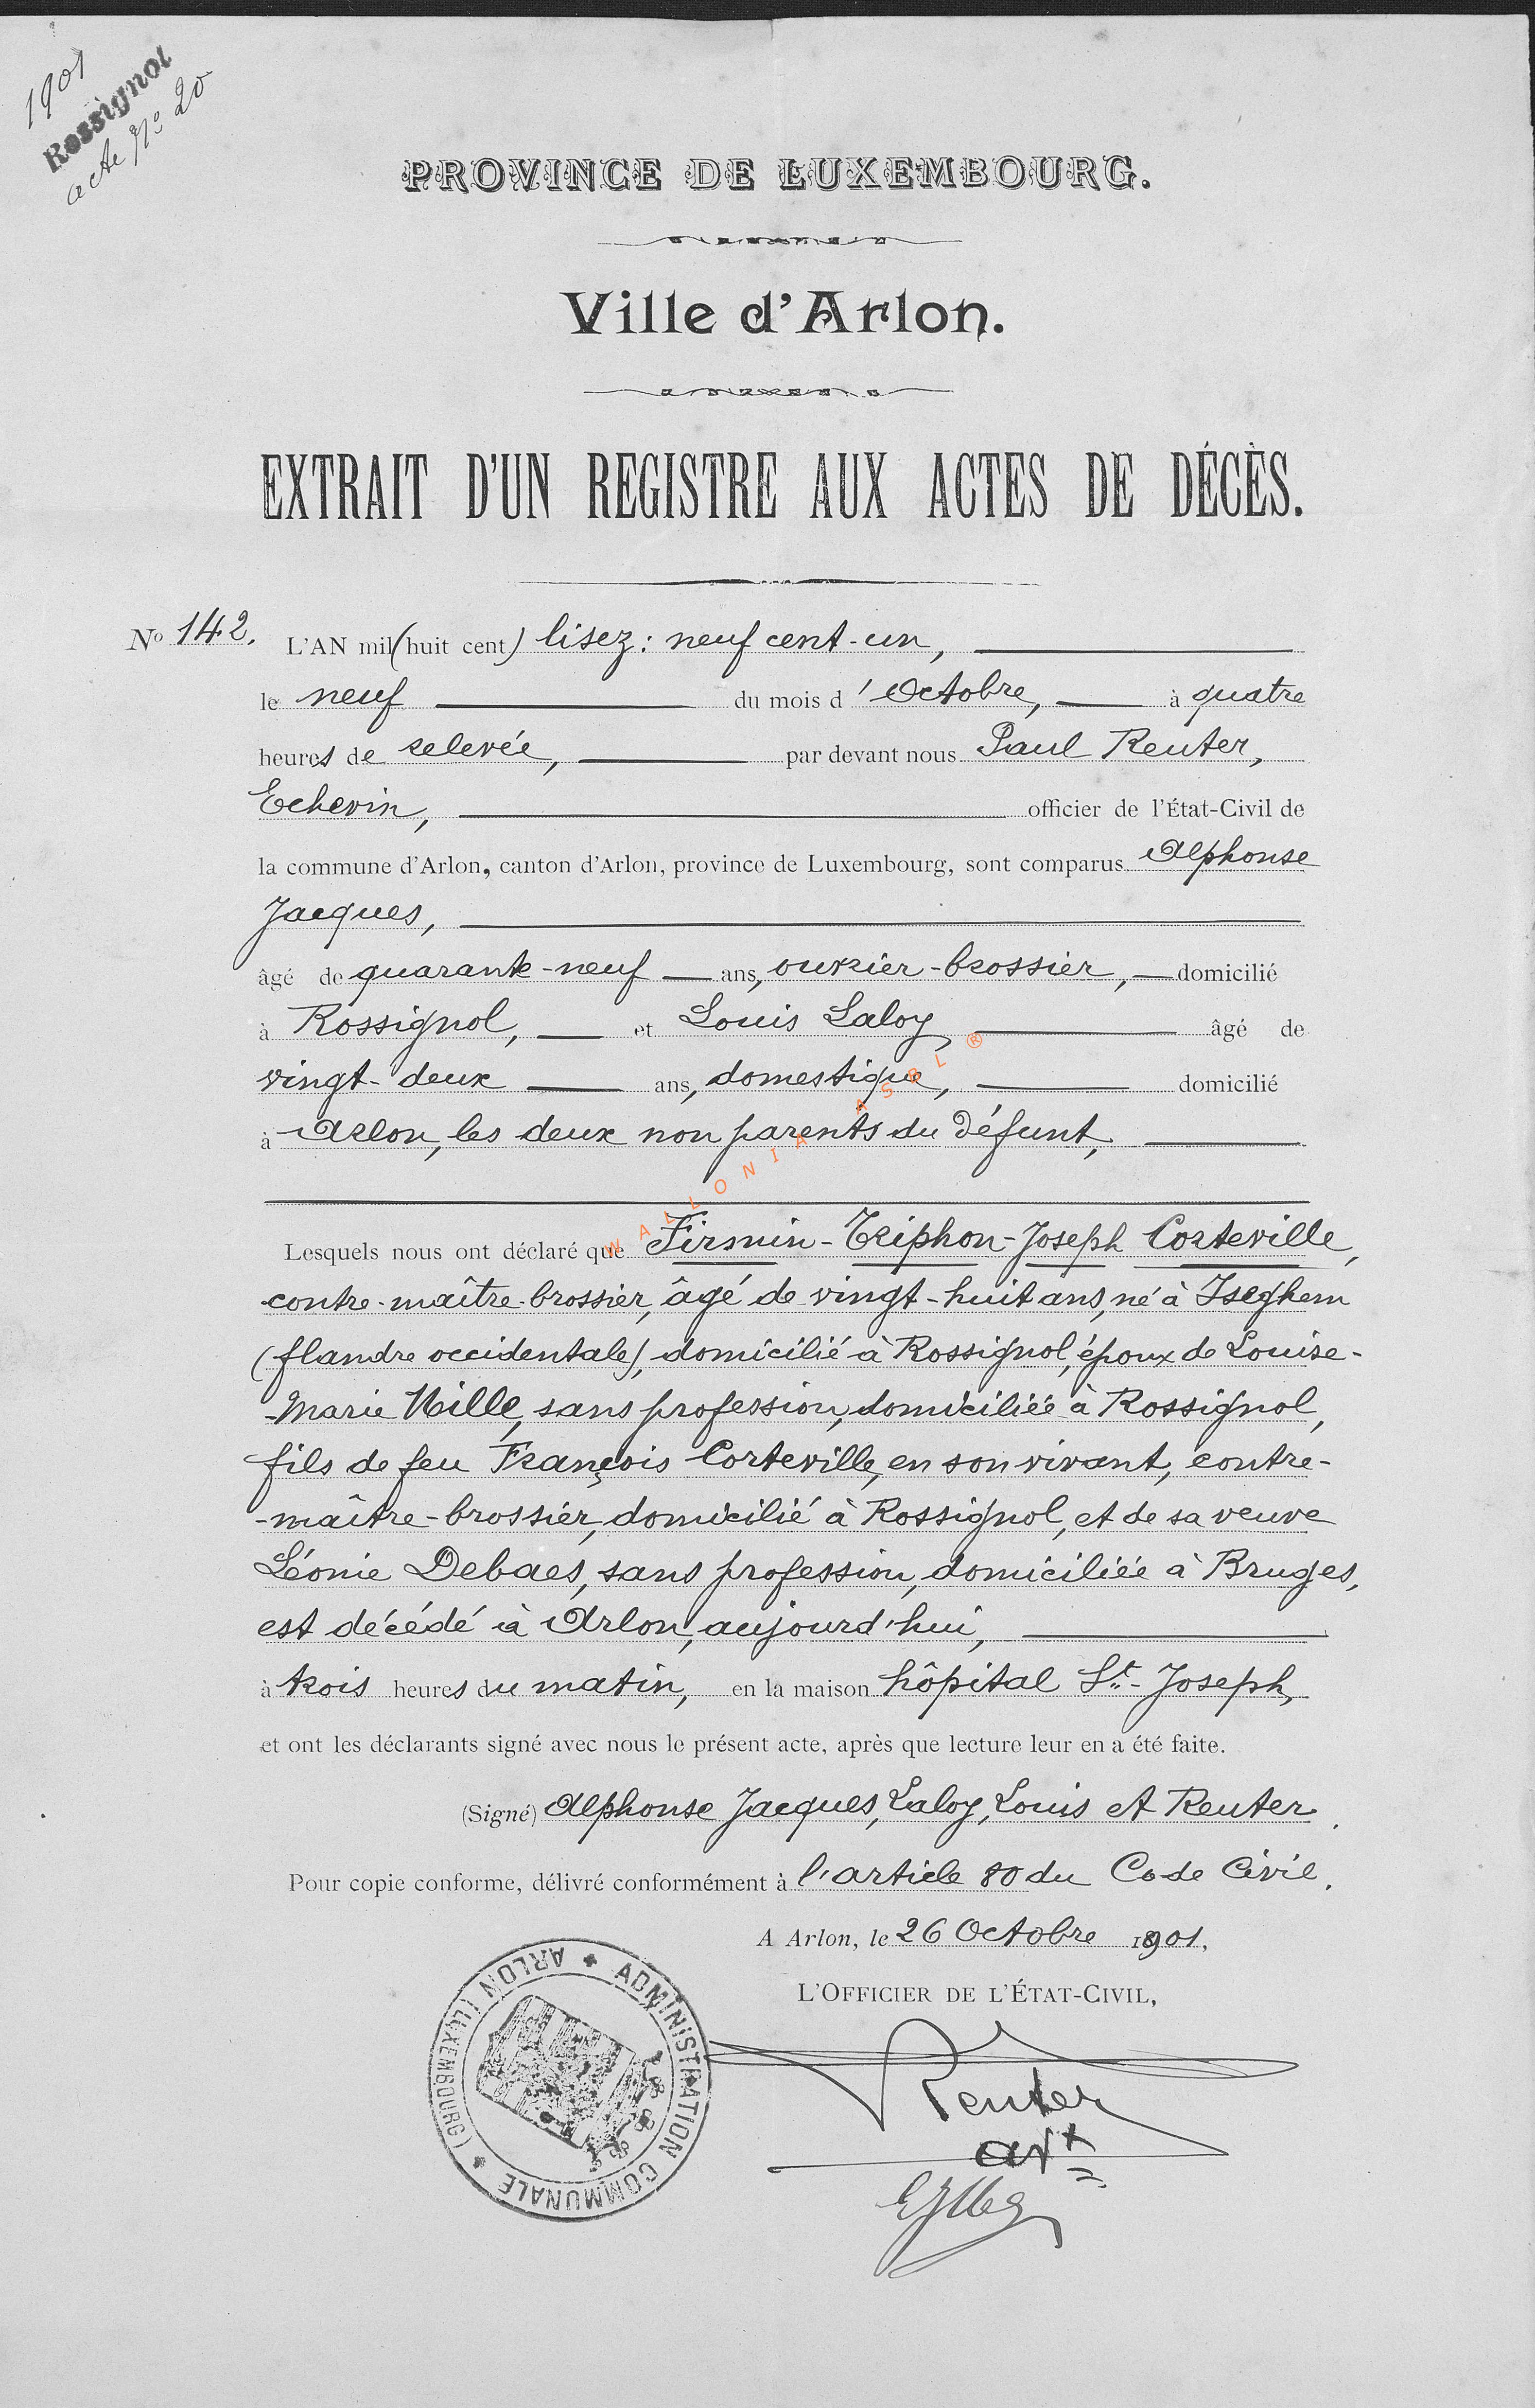 1901
Rossignol
acte No 20
PROVINCE DE LUXEMBOURG.
Ville d'Arlon.
EXTRAIT D'UN REGISTRE AUX ACTES DE DÉCÈS.
No 142. L'AN mil (huit cent) lisez : neuf cent-un,
le neuf du mois d'Octobre, à quatre
heures de relevée, par devant nous Paul Reuter,
Echevin, officier de l'État-Civil de
la commune d'Arlon, canton d'Arlon, province de Luxembourg, sont comparus Alphonse
Jacques,
âgé de quarante-neuf ans, ouvrier-brossier, domicilié
à Rossignol, et Louis Laloy, âgé de
vingt-deux ans, domestique, domicilié
à Arlon, les deux non parents du défunt,
WALLONIA ASBL ®
Lesquels nous ont déclaré que Firmin-Triphon-Joseph Corteville,
contre-maître-brossier, âgé de vingt-huit ans, né à Iseghem
(flandre occidentale), domicilié à Rossignol, époux de Louise-
-Marie Hille, sans profession, domiciliée à Rossignol,
fils de feu François Corteville, en son vivant, contre-
-maître-brossier, domicilié à Rossignol, et de sa veuve
Léonie Debaes, sans profession, domiciliée à Bruges,
est décédé à Arlon, aujourd'hui,
à trois heures du matin, en la maison hôpital St-Joseph,
et ont les déclarants signé avec nous le présent acte, après que lecture leur en a été faite.
(Signé) Alphonse Jacques, Laloy, Louis et Reuter.
Pour copie conforme, délivré conformément à l'article 80 du Code Civil.
A Arlon, le 26 Octobre 1901.
L'OFFICIER DE L'ÉTAT-CIVIL,
ADMINISTRATION COMMUNALE ARLON (LUXEMBOURG)
Reuter